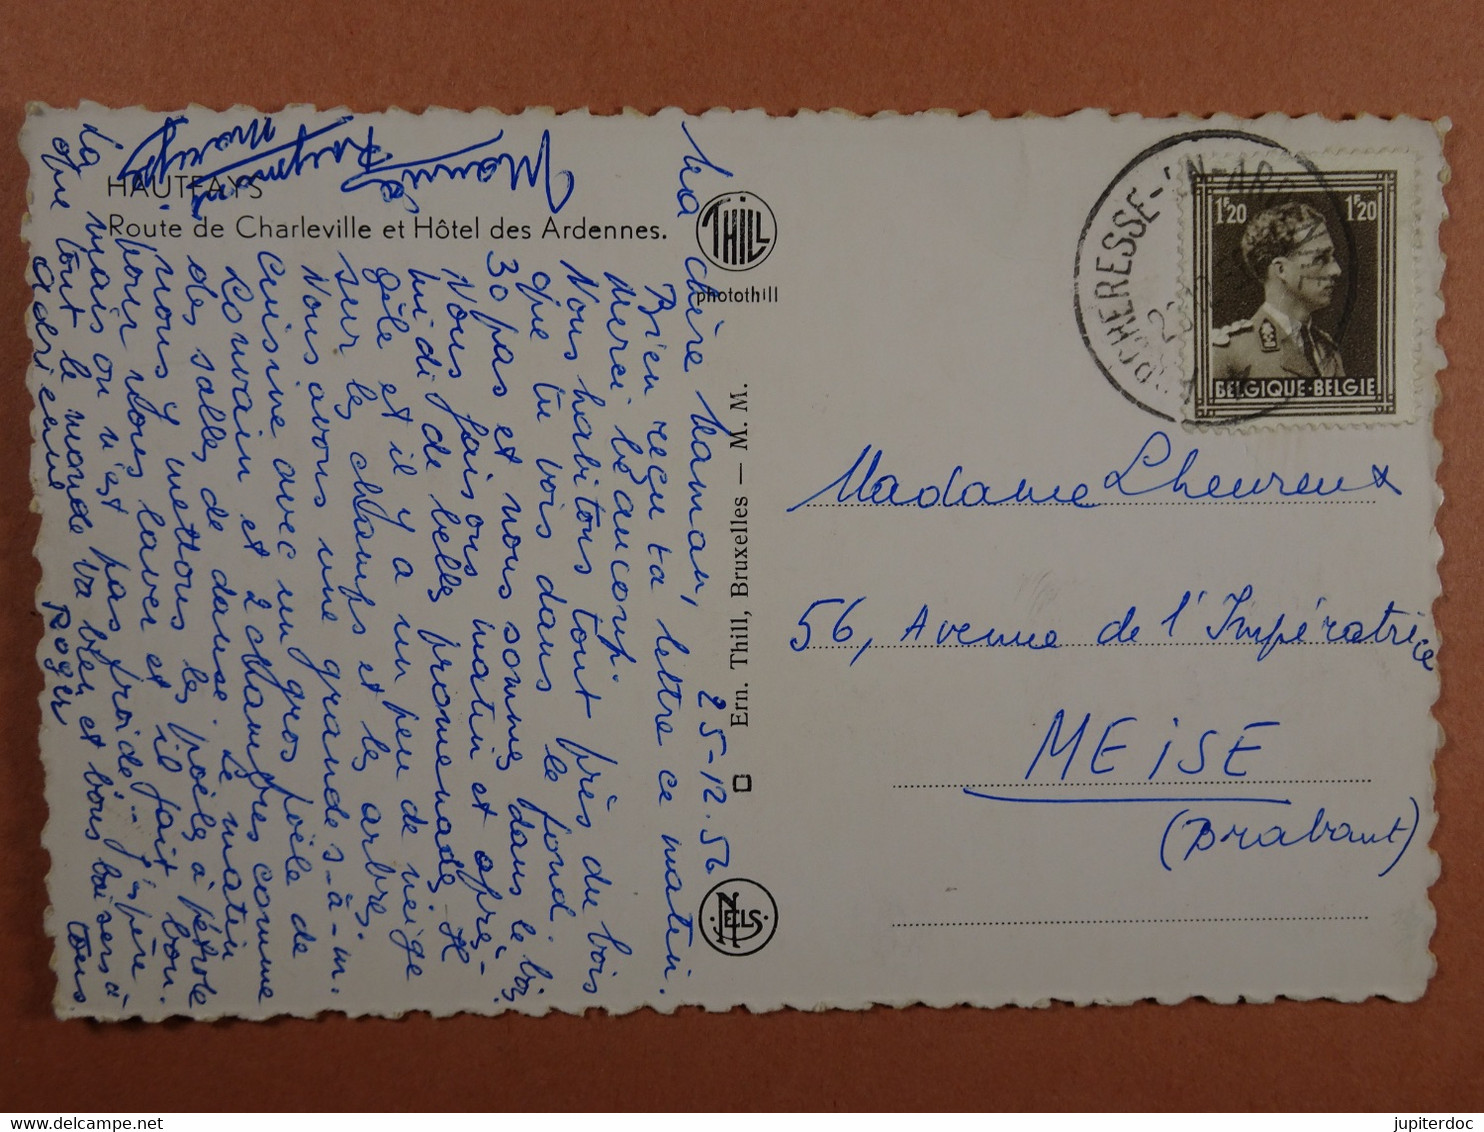 HAUTFAYS
Route de Charleville et Hôtel des Ardennes.
THILL
photothill
Ern. Thill, Bruxelles — M. M.
NELS
25-12.56
Ma chère Maman,
Bien reçu ta lettre ce matin.
Merci beaucoup.
Nous habitons tout près du bois
que tu vois dans le fond.
30 pas et nous sommes dans le bois
Nous faisons matin et après-
midi de belles promenades. Il
gèle et il y a un peu de neige
sur les champs et les arbres.
Nous avons une grande s-à-m.
cuisine avec un gros poële de
Louvain et 2 chambres comme
des salles de danse. Le matin
nous y mettons les poëles à pétrole
pour nous laver et il fait bon.
mais on n'est pas froide... J'espère
que tout le monde va bien et bons baisers à
tous
Adrienne Roger
Mamie
Raymond
1F20 1F20
BELGIQUE·BELGIE
PORCHERESSE-EN-ARDENNE
Madame Lheureux
56, Avenue de l'Impératrice
MEISE
(Brabant)
jupiterdoc